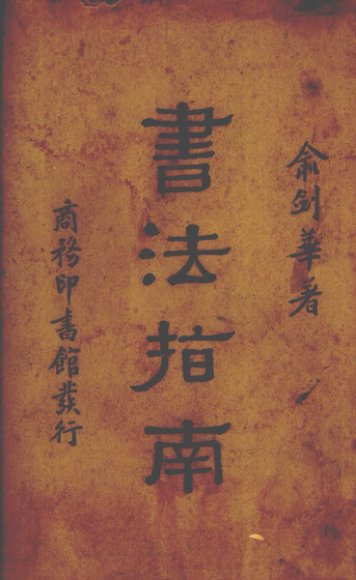 俞剑華著
書法指南
商務印書館發行